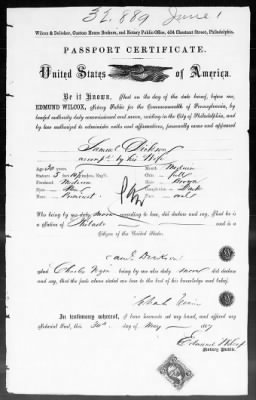 32,889 June 1
Wilcox & Delleker, Custom House Brokers, and Notary Public Office, 404 Chestnut Street, Philadelphia.
PASSPORT CERTIFICATE.
United States of America.
Be it Known, That on the day of the date hereof, before me,
EDMUND WILCOX, Notary Public for the Commonwealth of Pennsylvania, by
lawful authority duly commissioned and sworn, residing in the City of Philadelphia, and
by law authorized to administer oaths and affirmations, personally came and appeared
Samuel Dickson
accomp'd by his Wife
Age 30 years
Mouth Medium
Stature 5
Eng.
Chin full
Forehead Medium
Hair Brown
Eyes
Complexion Dark
Nose Prominent
Face oval
Who being by me duly sworn according to law, did declare and say, That he is
a Native of Philada and is a
Citizen of the United States.
Sam'l Dickson
And Charles
being by me also duly sworn did declare and
say, that the facts above stated are true to the best of his knowledge and belief.
In testimony whereof, I have hereunto set my hand, and affixed my
Notarial Seal, this 30th day of May 1867
Edmund Wilcox
Notary Public.